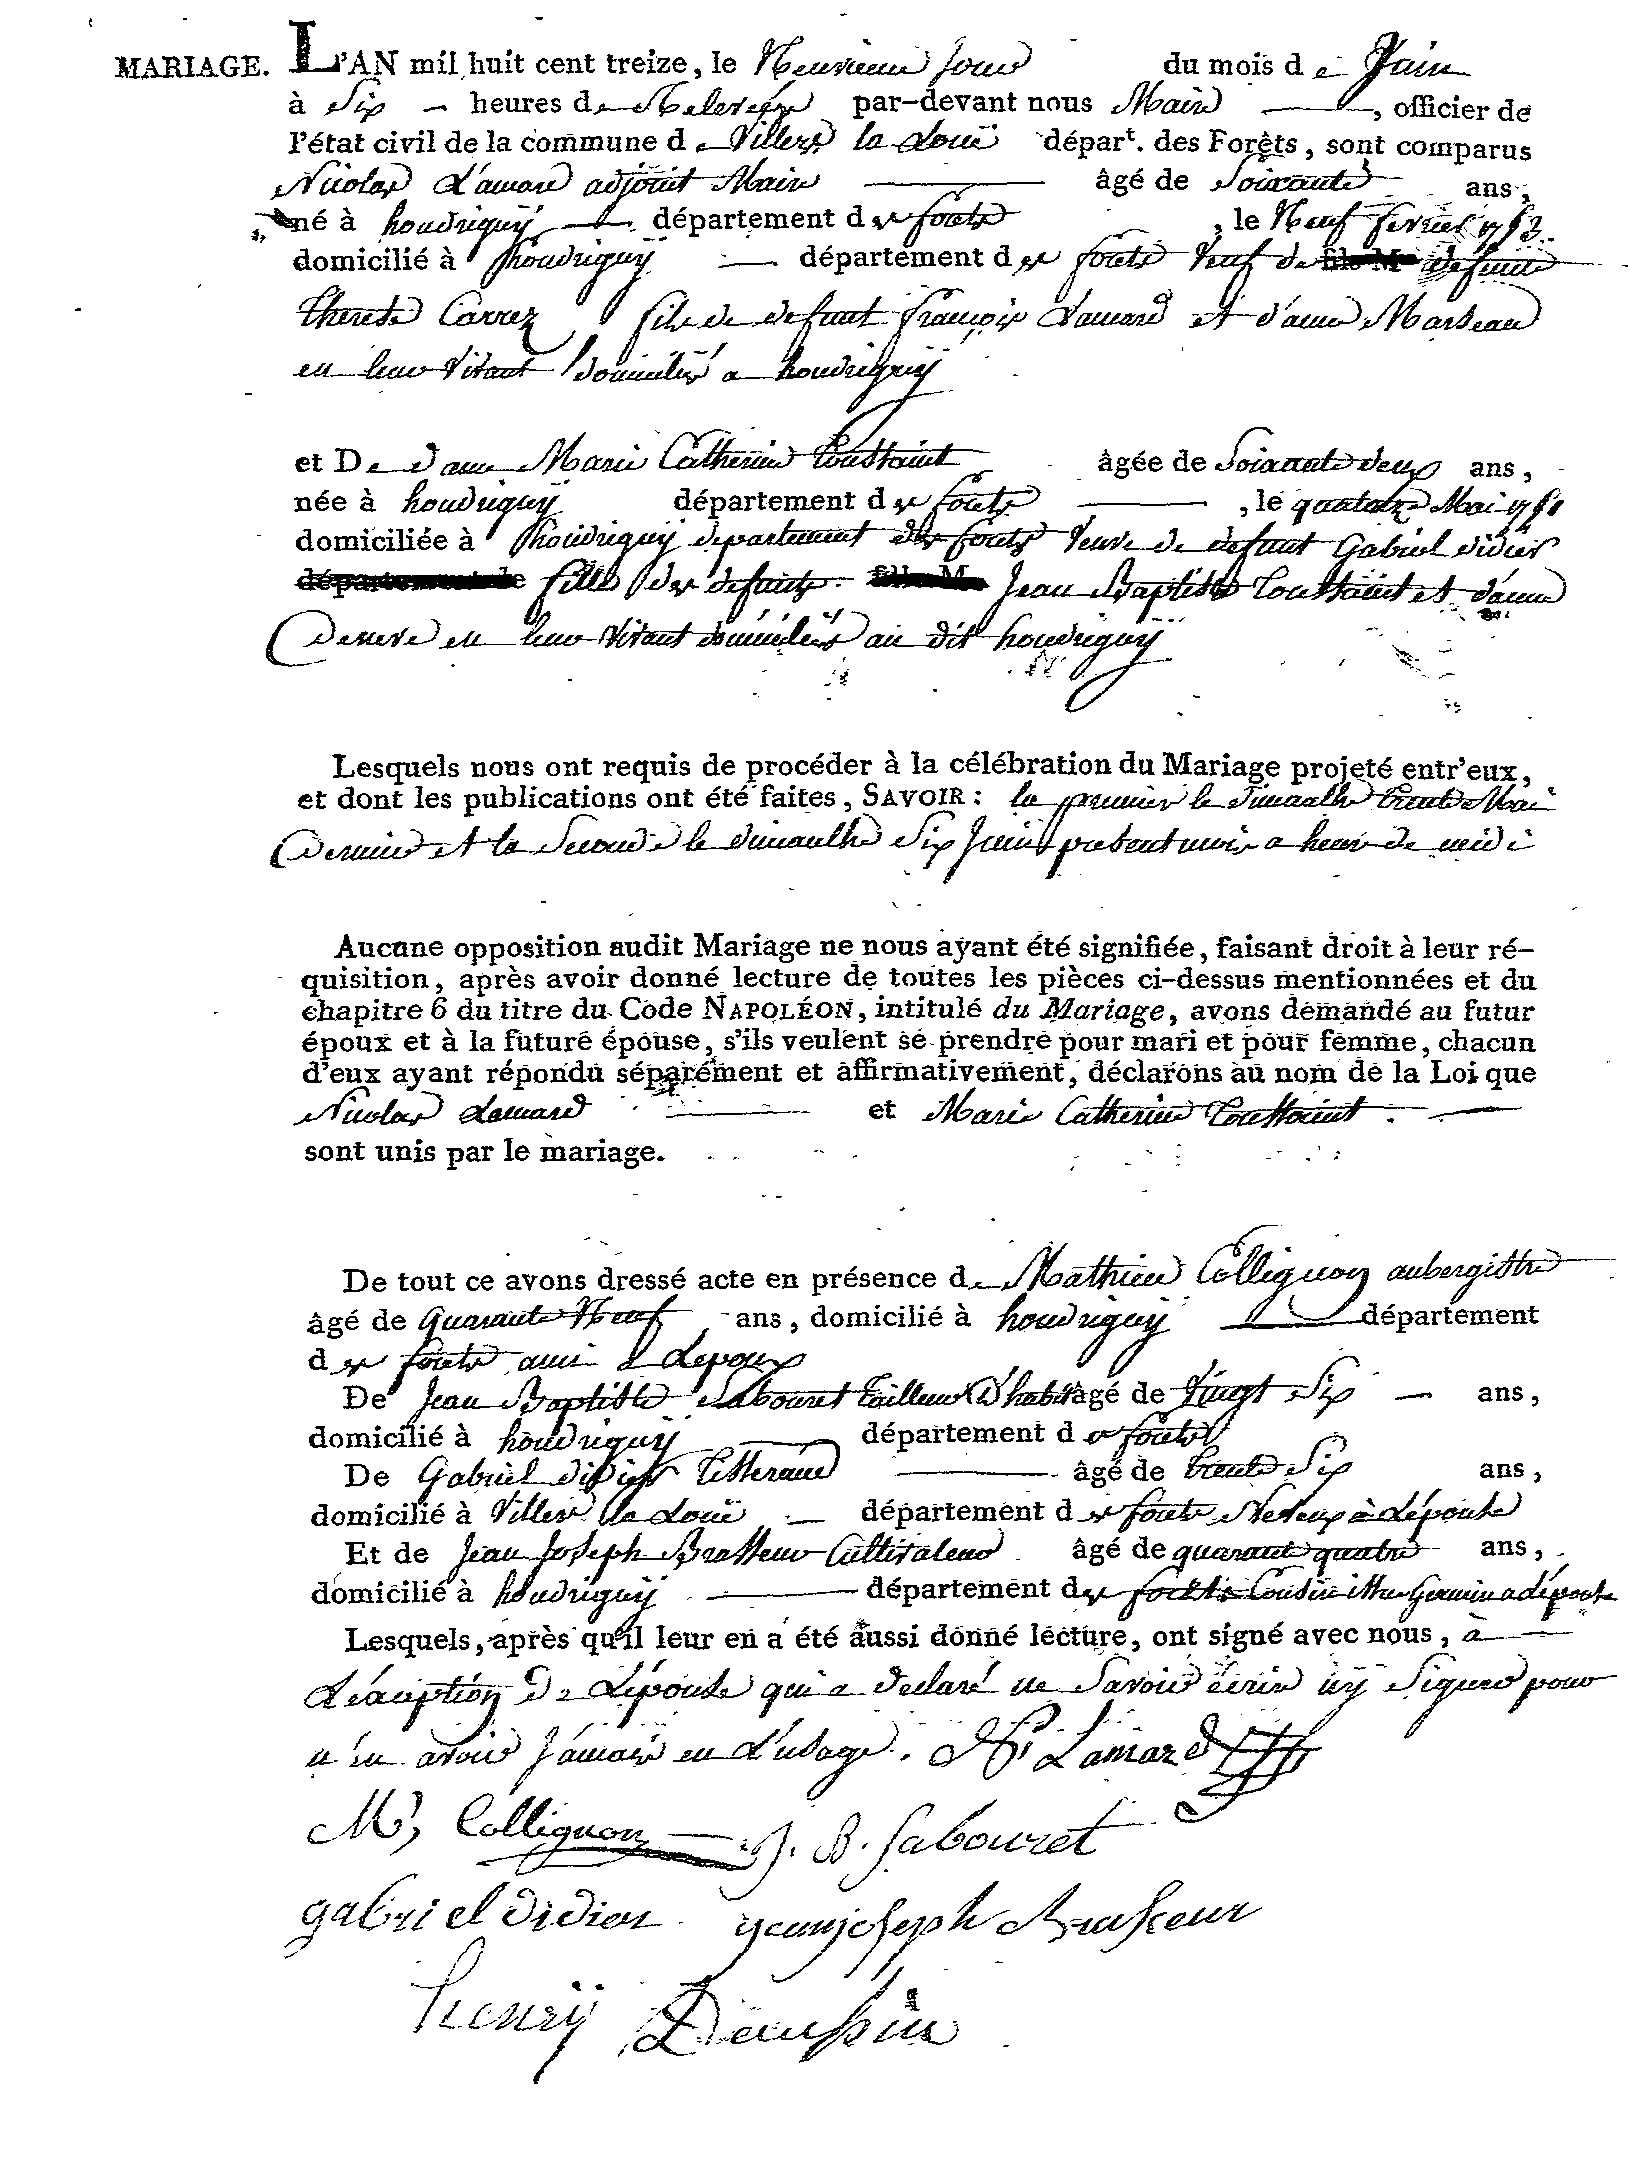 MARIAGE. L'AN mil huit cent treize, le Neuvieme Jour du mois de Juin
à Six heures de Relevée par-devant nous Maire, officier de
l'état civil de la commune de Villers la Loüe départ. des Forêts, sont comparus
Nicolas Lamard adjoint Maire âgé de Soixante ans,
né à houdriguÿ département des forets, le Neuf fevrier 1753
domicilié à houdriguÿ département des forets Veuf de defunte
Therese Carrez fils de defunt François Lamard et d'anne Marseau
en leur Vivant domiciliés a houdriguÿ
et De dame Marie Catherine Toussaint âgée de Soixante deux ans,
née à houdriguÿ département des forets, le quatorze Mai 1751
domiciliée à houdriguÿ departement des forets Veuve de defunt Gabriel didier
département de fille des defunts Jean Baptiste Toussaint et d'anne
en leur Vivant domiciliés au dit houdriguÿ
Lesquels nous ont requis de procéder à la célébration du Mariage projeté entr'eux,
et dont les publications ont été faites, SAVOIR : la premier le dimanche trente Mai
Dernier et la Seconde le dimanche Six Juin present mois a heure de midi
Aucune opposition audit Mariage ne nous ayant été signifiée, faisant droit à leur ré-
quisition, après avoir donné lecture de toutes les pièces ci-dessus mentionnées et du
chapitre 6 du titre du Code NAPOLÉON, intitulé du Mariage, avons demandé au futur
époux et à la future épouse, s'ils veulent se prendre pour mari et pour femme, chacun
d'eux ayant répondu séparément et affirmativement, déclarons au nom de la Loi que
Nicolas Lamard et Marie Catherine Toussaint
sont unis par le mariage.
De tout ce avons dressé acte en présence de Mathieu Collignon aubergistte
âgé de Quarante Neuf ans, domicilié à houdriguÿ département
des forets ami a Lepoux
De Jean Baptiste Sabouret tailleur D'habit âgé de Vingt Six ans,
domicilié à houdriguÿ département des forets
De Gabriel didier âgé de trente Six ans,
domicilié à Villers la Loüe département des forets Neveux à Lépouse
Et de Jean Joseph Brasseur Cultivateur âgé de quarante quatre ans,
domicilié à houdriguÿ département des forets Cousin issue Germin a dépouse
Lesquels, après qu'il leur en a été aussi donné lecture, ont signé avec nous, à
Léxception De Lépouse qui a declaré ne Savoir écrire nÿ Signer pour
n'en avoir Jamais eu L'usage. Ns Lamard
M, Collignon J. B. Sabouret
gabriel didier jeanjoseph Brasseur
henrÿ